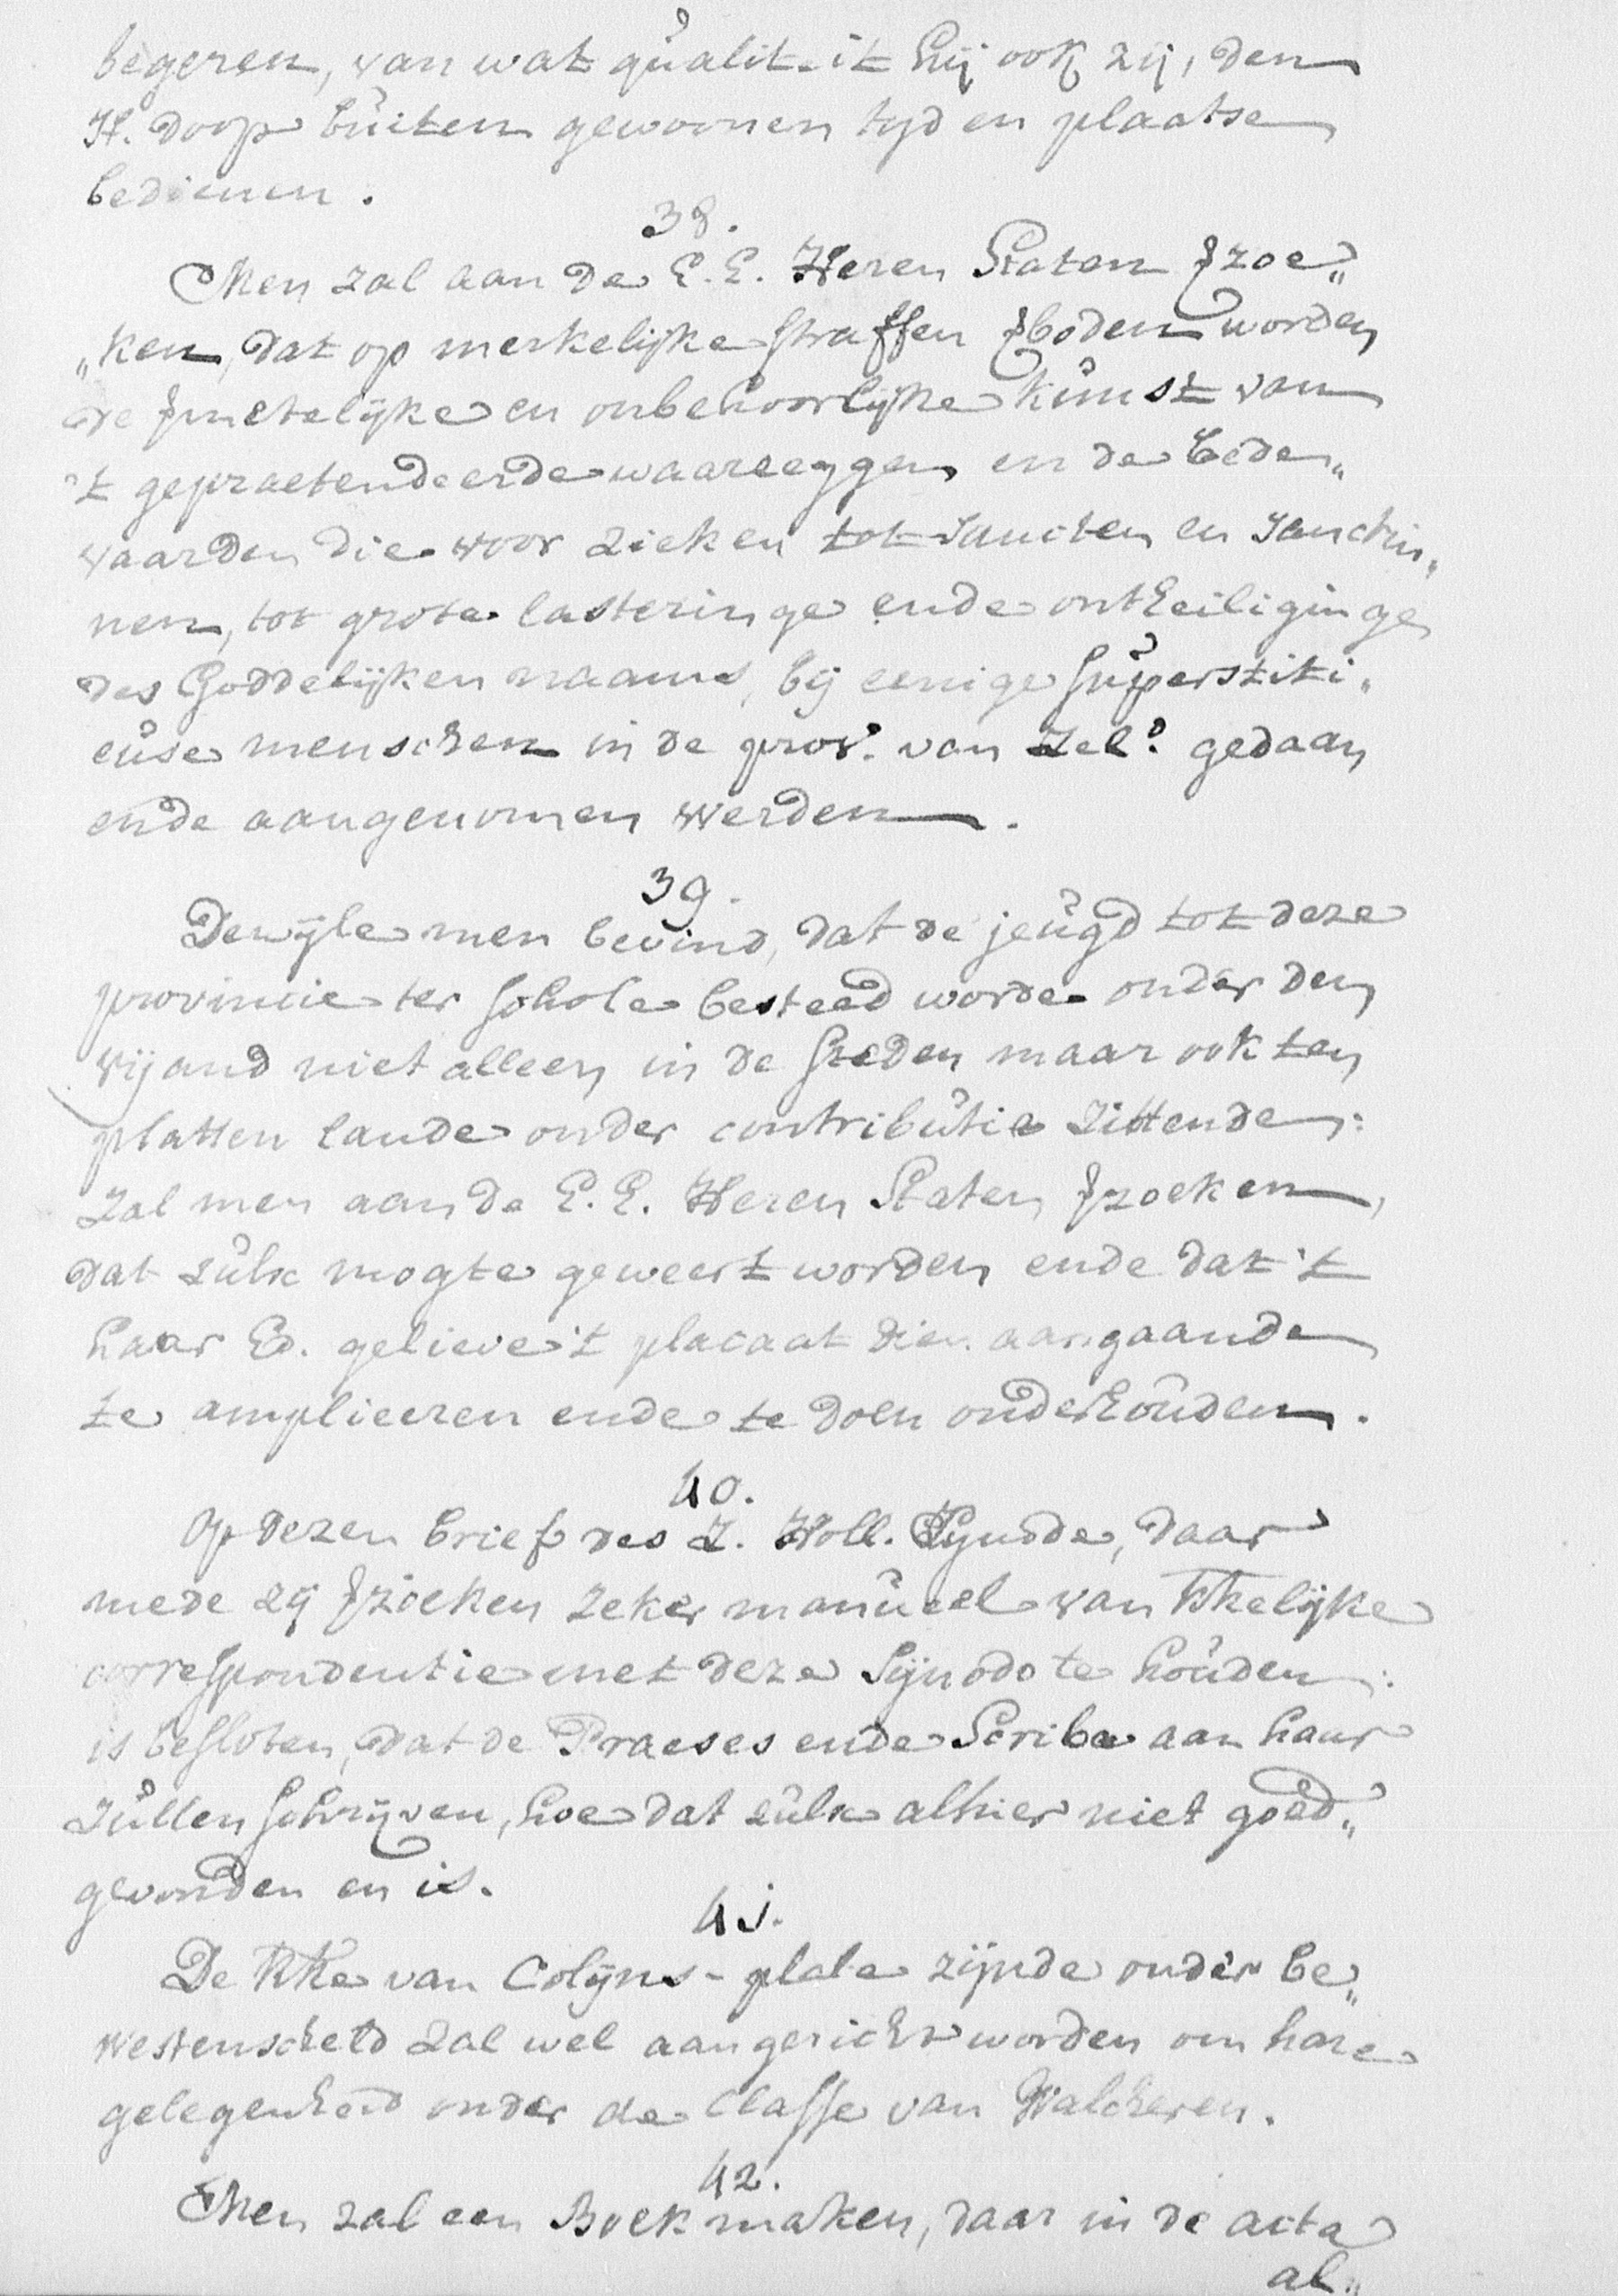 begeren, van wat qualiteit hij ook zij, den
H. Doop buiten gewoonen tyd en plaatse
bedienen.
38.
Men zal aan de E. E. Heren Staten ꝟzoe„
„ken, dat op merkelijke straffen ꝟboden worden
de
en onbehoorlijke kunst van
't gepraetendeerde waarzeggen en de bede„
vaarden die voor zieken tot Sancten en Sanctin„
nen, tot grote lasteringe ende ontheiliginge
des Goddelijken naams, bij eenige superstiti„
euse menschen in de prov. van Zel.d gedaan
ende aangenomen werden.
39.
Dewyle men bevind, dat de jeugd tot deze
provincie ter schole besteed worde onder den
vijand niet alleen in de steden maar ook ten
platten lande onder contributie zittende:
Zal men aan de E. E. Heren Staten ꝟzoeken,
dat zulx mogte geweert worden ende dat 't
haar Ed. gelieve 't placaat dien aangaande
te amplieeren ende te doen onderhouden.
40.
Op dezen brief des Z. Holl. Synode, daar
mede zy ꝟzoeken zeker manueel van kkelijke
correspondentie met deze Synodo te houden:
is besloten, dat de Praeses ende Scriba aan haar
zullen schrijven, hoe dat zulx alhier niet goed„
gevonden en is.
41.
De kke van Colijns-plate zijnde onder be„
westenscheld zal wel aangericht worden om hare
gelegenheid onder de Classe van Walcheren.
42.
Men zal een Boek maken, daar in de acta
al„